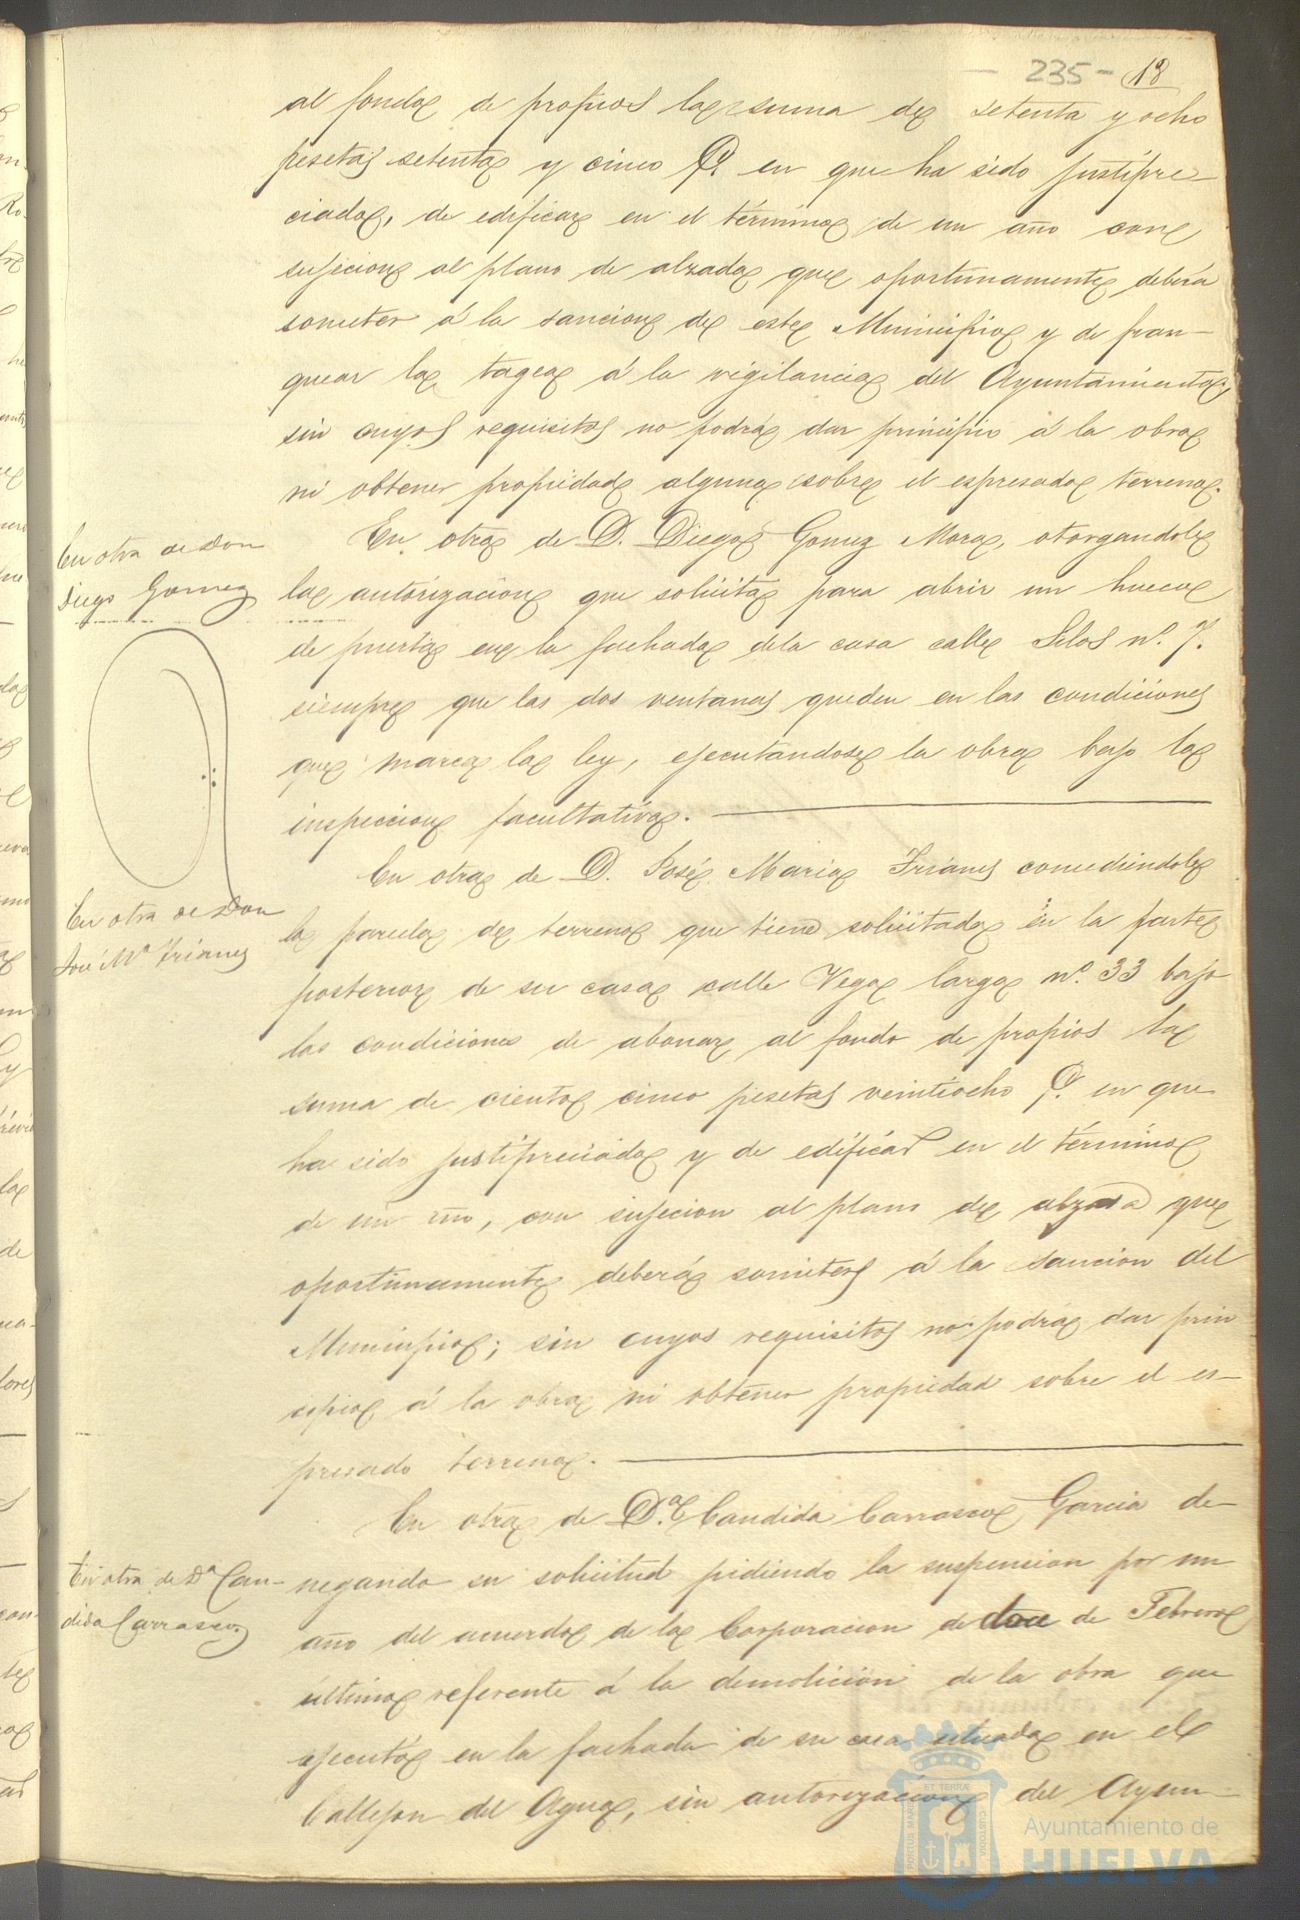 235 - 18
al fondo de propios la suma de setenta y ocho
pesetas setenta y cinco Cs. en que ha sido justipre-
ciado, de edificar en el término de un año con
sujecion al plano de alzada que oportunamente deberá
someter á la sancion de este Municipio y de fran-
quear la tagea á la vigilancia del Ayuntamiento,
sin cuyos requisitos no podrá dar principio á la obra
ni obtener propiedad alguna sobre el espresado terreno.
En otra de Don
Diego Gomez
En otra de D. Diego Gomez Mora, otorgandole
la autorizacion que solicita para abrir un hueco
de puerta en la fachada de la casa calle Silos nº. 7.
siempre que las dos ventanas queden en las condiciones
que marca la ley, ejecutandose la obra bajo la
inspeccion facultativa.
En otra de Don
José Mª Trianes
En otra de D. José Maria Trianes concediendole
la parcela de terreno que tiene solicitada en la parte
posterior de su casa calle Vega larga nº. 33 bajo
las condiciones de abonar al fondo de propios la
suma de ciento cinco pesetas veintiocho Cs. en que
ha sido justipreciado y de edificar en el término
de un año, con sujecion al plano de alzada que
oportunamente deberá someter á la sancion del
Municipio; sin cuyos requisitos no podrá dar prin
cipio á la obra ni obtener propiedad sobre el es-
presado terreno.
En otra de Dª Can-
dida Carrasco
En otra de D.ª Candida Carrasco Garcia de-
negando su solicitud pidiendo la suspension por un
año del acuerdo de la Corporacion de doce de Febrero
último referente á la demolicion de la obra que
ejecutó en la fachada de su casa situada en el
Callejon del Agua, sin autorizacion del Ayun-
Ayuntamiento de
HUELVA